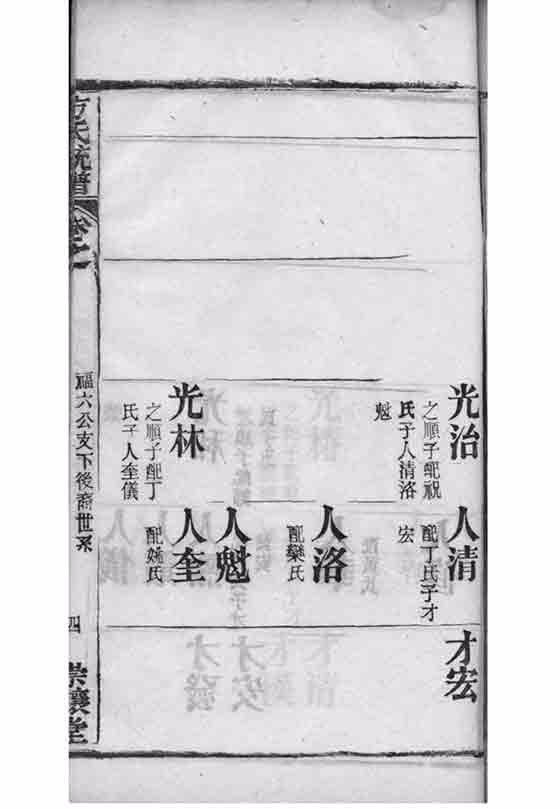 光治
之順子配祝
氏子人清洛
魁
人清
配丁氏子才
宏
才宏
人洛
配欒氏
人魁
光林
之順子配丁
氏子人奎儀
人奎
配姚氏
方氏統譜
卷之一
福六公支下後裔世系
四
崇讓堂